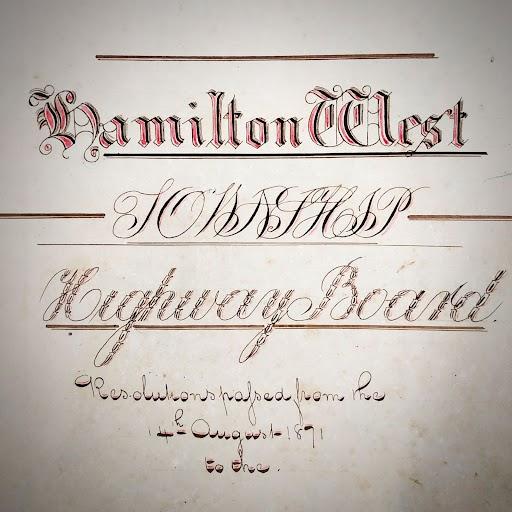 Hamilton West
TOWNSHIP
Highway Board.
Resolutions paſsed from the
14th August 1871
to the.